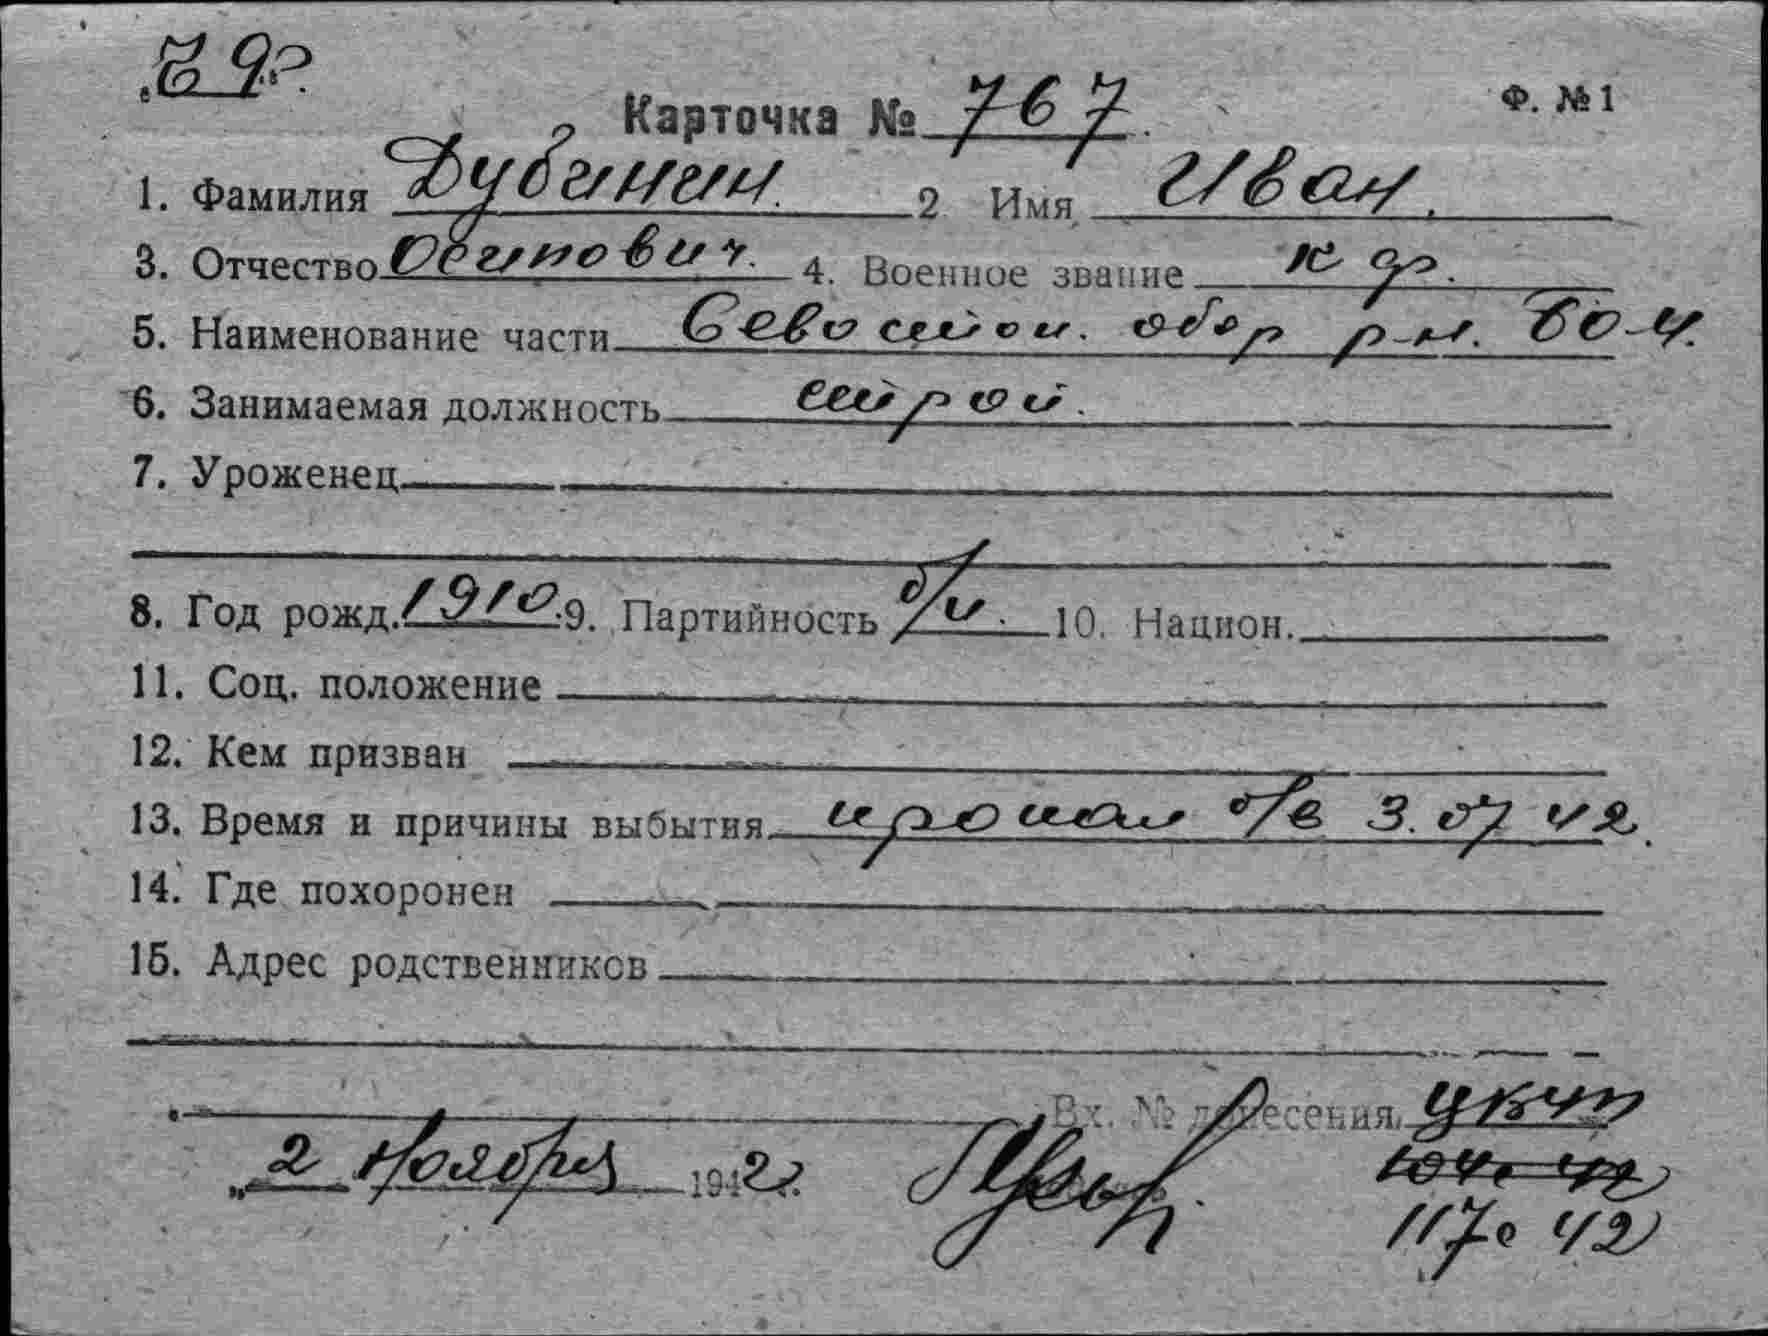 Карточка № 767
Ф. № 1
1. Фамилия Дубинин. 2 Имя Иван.
3. Отчество Осипович. 4. Военное звание к ф.
5. Наименование части Севастоп. обор р-н.
6. Занимаемая должность строй.
7. Уроженец
8. Год рожд. 1910. 9. Партийность б/п. 10. Национ.
11. Соц. положение
12. Кем призван
13. Время и причины выбытия пропал б/в 3.07 42.
14. Где похоронен
15. Адрес родственников
Вх. № донесения
„2 ноября 1942 г.
117с 42